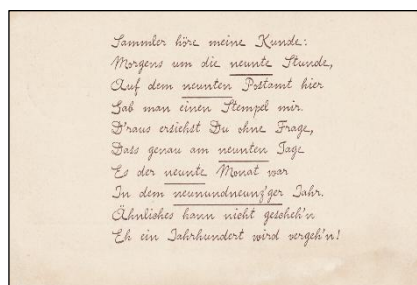 Sammler höre meine Kunde:
Morgens um die neunte Stunde,
Auf dem neunten Postamt hier
Gab man einen Stempel mir.
D'raus ersiehst Du ohne Frage,
Dass genau am neunten Tage
Es der neunte Monat war
In dem neunundneunz'ger Jahr.
Ähnliches kann nicht gescheh'n
Eh ein Jahrhundert wird vergeh'n!